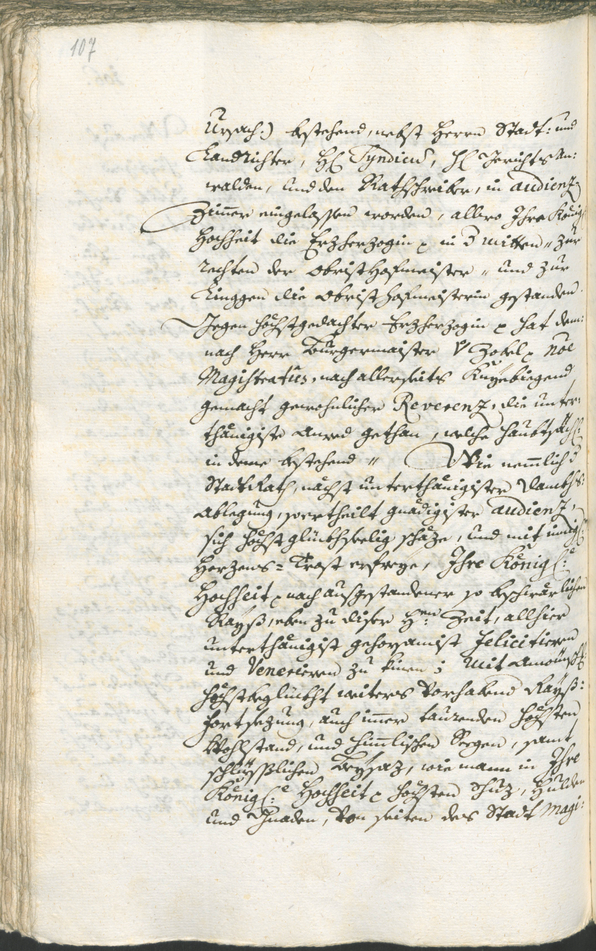 107
Ursach:) bestehend, nebst Herrn Stadt: und
Landrichter, H: Syndico, H: Gerichts An:
walden, und den Rathschreiber, in audienz
Zimmer eingelassen worden, allwo Ihre König:
Hochheit die Erzherzogin in d mitten, zur
rechten der Obrist Hofmeister, und zur
Linggen die Obrist Hofmeisterin gestanden.
Gegen höchstgedachter Erzherzogin hat dem:
nach Herr Burgermaister V Zobel noe
Magistratus, nach allerseits Knyebiegend
gemacht gewohnlicher Reverenz, die unter:
thänigiste Anred gethan, welche haubtsächl:
in deme bestehend Wie nemmlich d
Stadt Rath, nächst unterthänigister
Ablegung, ertheilt gnädigister audienz,
sich höchst glückhseelig schäze, und mit innig:
Herzens=Trost erfreye, Ihre König:
Hochheit nach ausgestandener so beschwärlichen
Rayß, eben zu diser Zeit, allhier
unterthänigist gehorsamist felicitieren
und Venerieren zu können; Mit
höchstbeglückht weiters Vorhabend Rayß:
fortsezung, auch immer daurenden höchsten
Wohlstand, und himmlischen Seegen, samt
schlüßlichen Beysaz, wie mann in Ihre
König: Hochheit höchsten Schuz, Hulden
und Gnaden, von seiten des Stadt Magi: